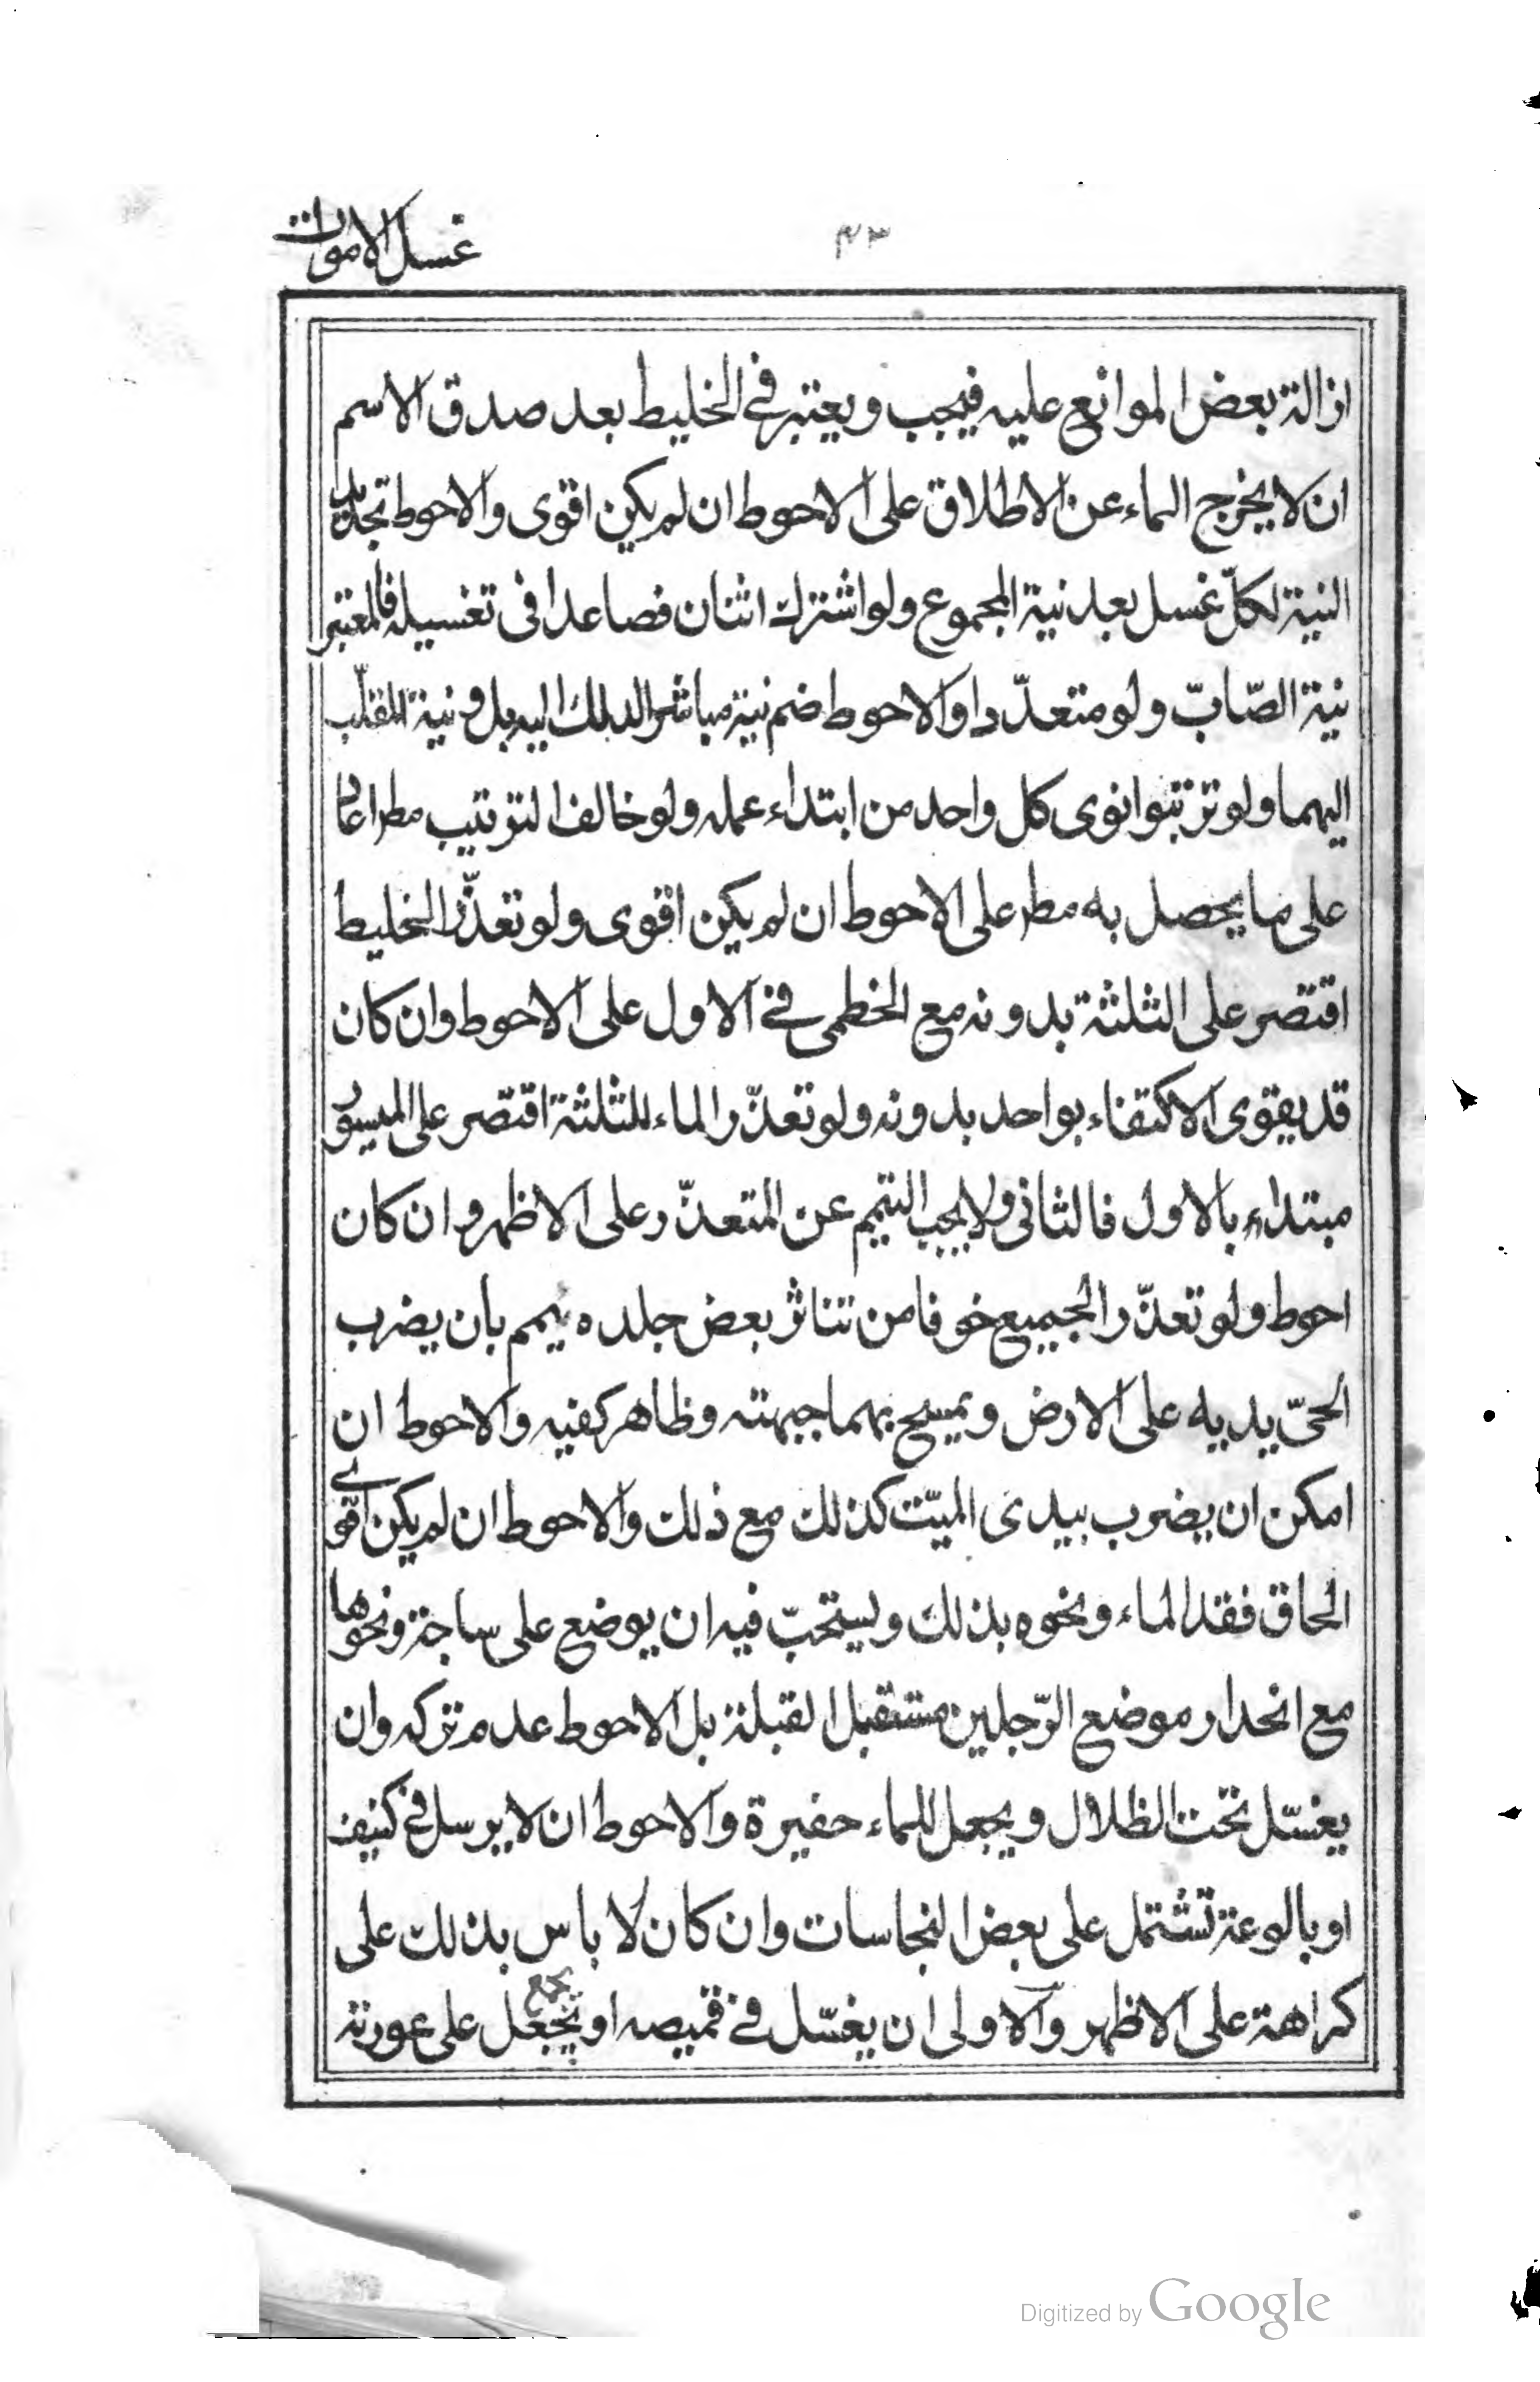 غسل الاموات
٤٣
ازالة بعض الموانع عليه فيجب ويعتبر في الخليط بعد صدق الاسم
ان لا يخرج الماء عن الاطلاق على الاحوط ان لم يكن اقوى والاحوط تجديد
النية لكلّ غسل بعد نية المجموع ولو اشترك اثنان فصاعدا فى تغسيله فالمعتبر
نية الصّابّ ولو متعدّدا والاحوط ضم نية مباشر الدلك اليه بل ونية المقلّب
اليهما ولو ترتبوا نوى كل واحد من ابتداء عمله ولو خالف الترتيب اعاد
على ما يحصل به على الاحوط ان لم يكن اقوى ولو تعذّر الخليط
اقتصر على الثلثة بدونه مع الخطمى في الاول على الاحوط وان كان
قد يقوى الاكتفاء بواحد بدونه ولو تعذّر الماء للثلثة اقتصر على الميسور
مبتداء بالاول فالثانى ولا يجب التيمم عن المتعذّر على الاظهر وان كان
احوط ولو تعذّر الجميع خوفا من تناثر بعض جلده يمم بان يضرب
الحىّ يديه على الارض ويمسح بهما جبهته وظاهر كفيه والاحوط ان
امكن ان يضرب بيدى الميّت كذلك مع ذلك والاحوط ان لم يكن اقوى
الحاق فقد الماء ونحوه بذلك ويستحبّ فيه ان يوضع على ساجة ونحوها
مع انحدار موضع الرّجلين مستقبل القبلة بل الاحوط عدم تركه وان
يغسّل تحت الظلال ويجعل للماء حفيرة والاحوط ان لا يرسل في كنيف
او بالوعة تشتمل على بعض النجاسات وان كان لا باس بذلك على
كراهة على الاظهر والاولى ان يغسّل في قميصه او يجعل على عورته
Digitized by Google